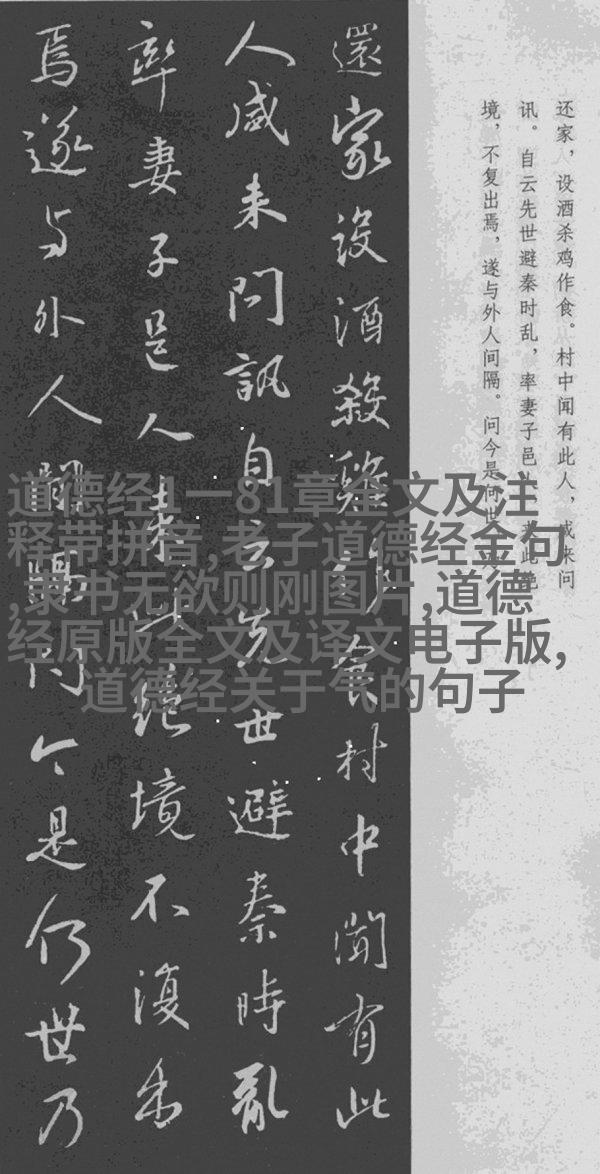 还家，设酒杀鸡作食。村中闻有此人，咸来问
讯。自云先世避秦时乱，率妻子邑人来此绝
境，不复出焉，遂与外人间隔。问今是何世
還家設酒殺雞作食村中聞有此
人咸来問訊自云先世避秦時亂
率妻子邑人来此絕境不復出
焉遂与外人間隔問今是何世乃
道德经1一81章全文及注
释带拼音,老子道德经金句
,隶书无欲则刚图片,道德
经原版全文及译文电子版,
道德经关于气的句子